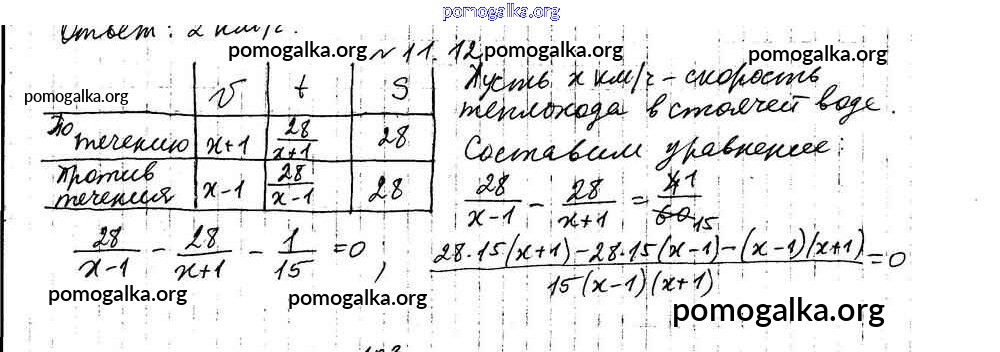 pomogalka.org
Ответ: 2 км/с.
pomogalka.org
№ 11.12
pomogalka.org
pomogalka.org
v t S
По течению x+1 28/(x+1) 28
Против течения x-1 28/(x-1) 28
Пусть x км/ч – скорость
теплохода в стоячей воде.
Составим уравнение:
28/(x-1) - 28/(x+1) = 41/6015
28/(x-1) - 28/(x+1) - 1/15 = 0 ;
(28·15(x+1) - 28·15(x-1) - (x-1)(x+1))/(15(x-1)(x+1)) = 0
pomogalka.org
pomogalka.org
pomogalka.org